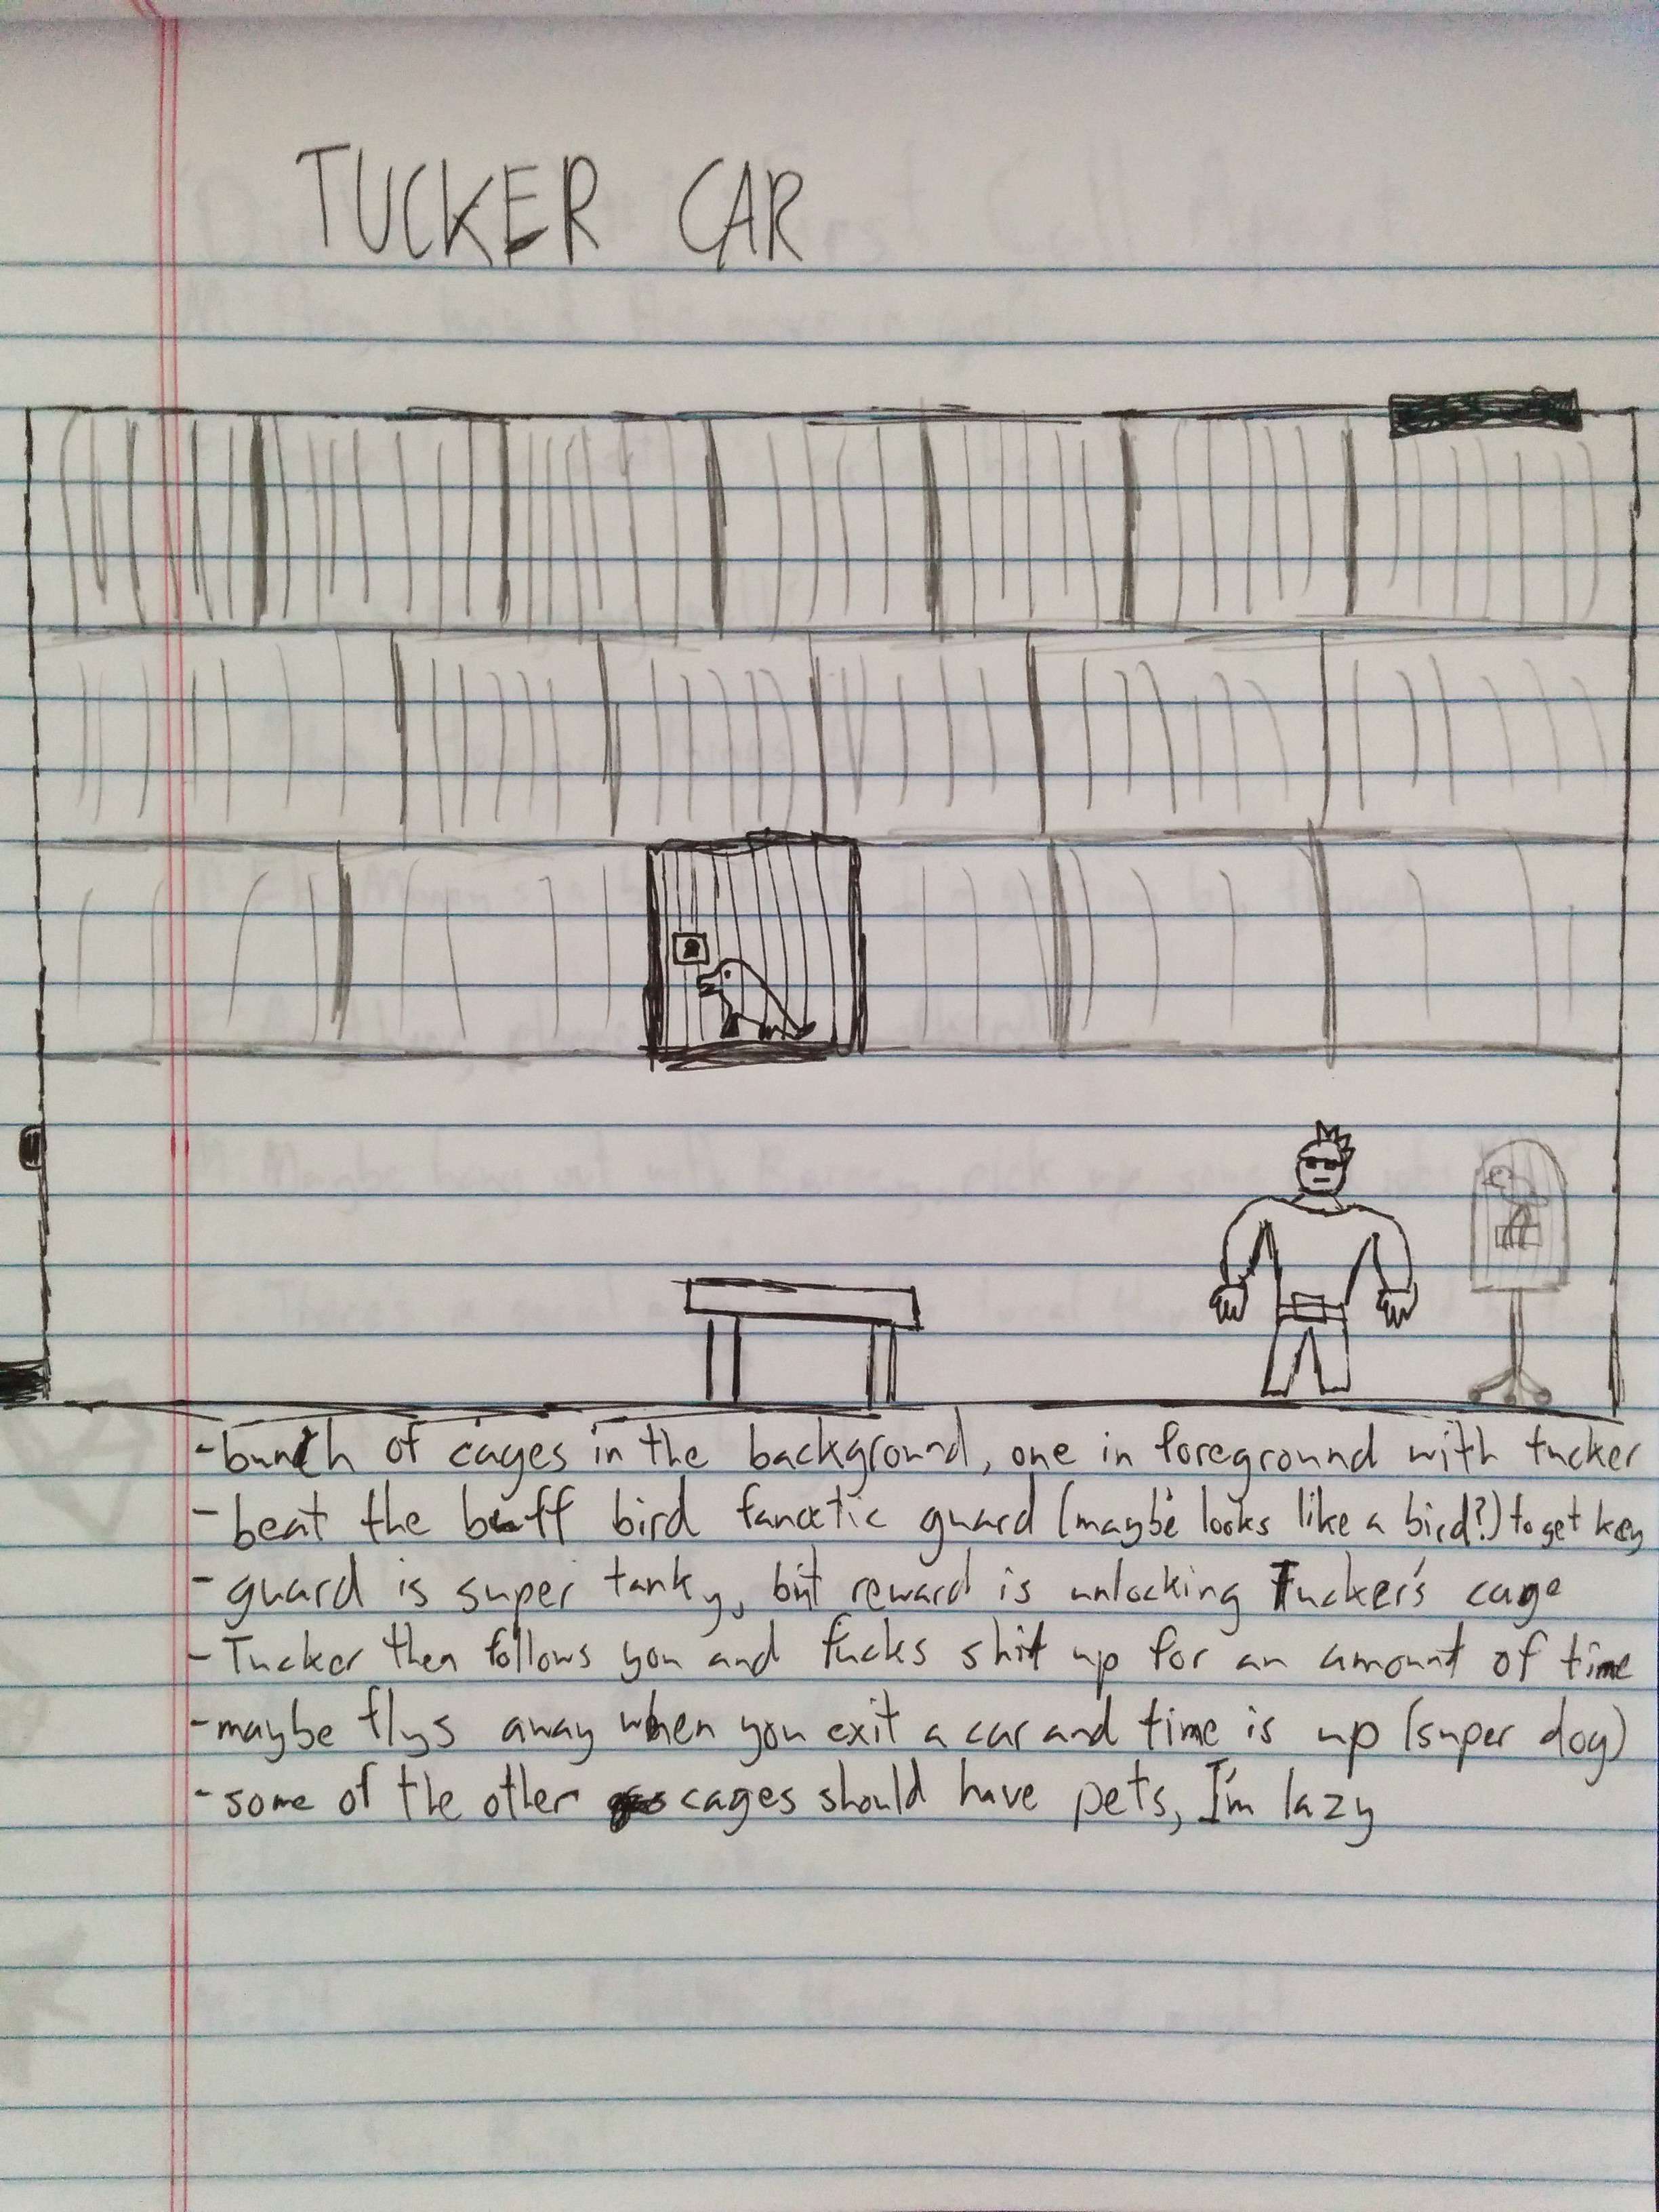 TUCKER CAR
- bunch of cages in the background, one in foreground with tucker
- beat the buff bird fanatic guard (maybe looks like a bird?) to get key
- guard is super tanky, but reward is unlocking Tucker's cage
- Tucker then follows you and fucks shit up for an amount of time
- maybe flys away when you exit a car and time is up (super dog)
- some of the other cages should have pets, I'm lazy